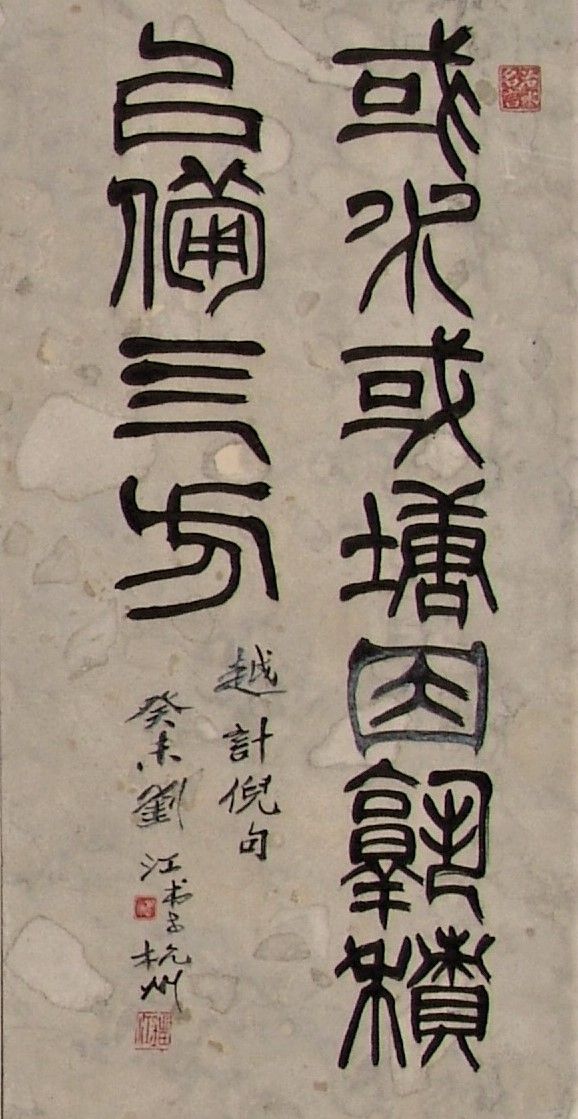 或水或塘因孰積
以備三方
越計倪句
癸未劉江书于杭州